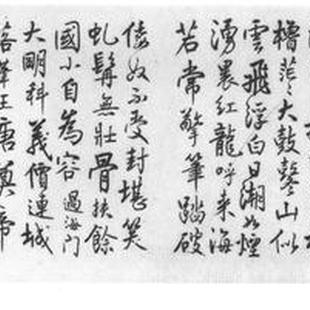 大鼓鼕山似
雲飛浮白日潮如煙
湧紅龍呼来海
若常擎筆踏破
倭奴不受封堪笑
虬髯無壮骨扶餘
國小自為容 過海門
大明科義價連城
王唐奠帝